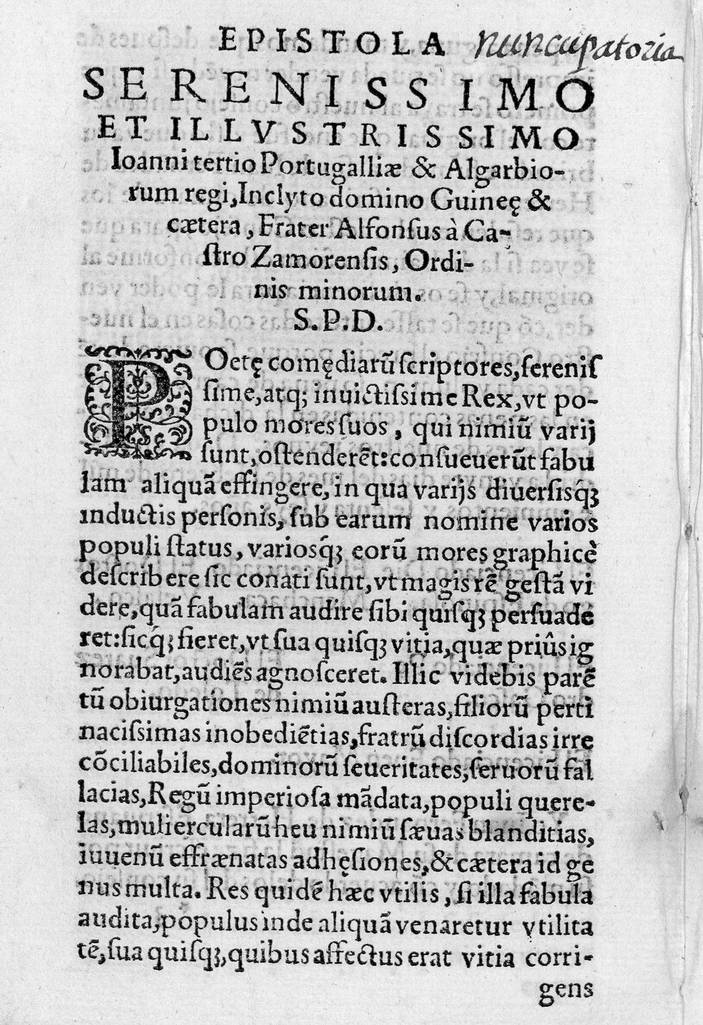 EPISTOLA nuncupatoria
SERENISSIMO
ET ILLVSTRISSIMO
Ioanni tertio Portugalliæ & Algarbio-
rum regi, Inclyto domino Guineę &
cætera, Frater Alfonsus à Ca-
ſtro Zamorensis, Ordi-
nis minorum.
S.P.D.
Poetę comędiarũ ſcriptores, ſereniſ
ſime, atq; inuictiſsime Rex, vt po-
pulo mores ſuos, qui nimiũ varij
ſunt, oſtenderẽt: conſueuerũt fabu
lam aliquã effingere, in qua varijs diuerſisq́ꝫ
inductis perſonis, ſub earum nomine varios
populi ſtatus, variosq́ꝫ eorũ mores graphicè
deſcribere ſic conati ſunt, vt magis rẽ geſtã vi
dere, quã fabulam audire ſibi quiſqꝫ perſuade
ret: ſicq́ꝫ fieret, vt ſua quiſqꝫ vitia, quæ priûs ig
norabat, audiẽs agnoſceret. Illic videbis parẽ
tũ obiurgationes nimiũ auſteras, filiorũ perti
naciſsimas inobediẽtias, fratrũ diſcordias irre
cõciliabiles, dominorũ ſeueritates, ſeruorũ fal
lacias, Regũ imperioſa mãdata, populi quere-
las, muliercularũ heu nimiũ ſæuas blanditias,
iuuenũ effrænatas adhęſiones, & cætera id ge
nus multa. Res quidẽ hæc vtilis, ſi illa fabula
audita, populus inde aliquã venaretur vtilita
tẽ, ſua quiſqꝫ, quibus affectus erat vitia corri-
gens